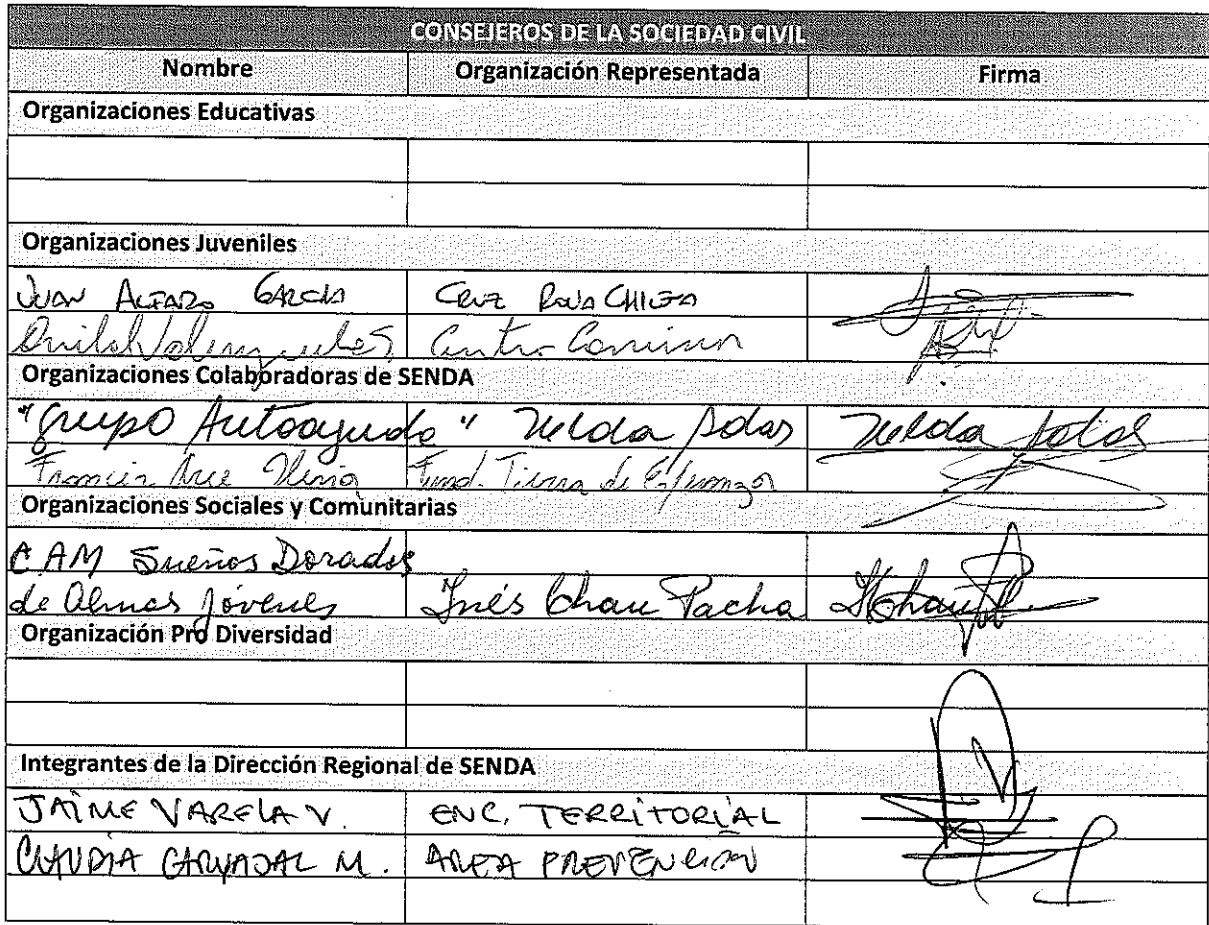 CONSEJEROS DE LA SOCIEDAD CIVIL
Nombre Organización Representada Firma
Organizaciones Educativas
Organizaciones Juveniles
JUAN ALFARO GARCIA CRUZ ROJA CHILENA
Centro
Organizaciones Colaboradoras de SENDA
"Grupo Autoayuda" Nelda Sotos Nelda Sotos
Fund. Tierra de Esperanza
Organizaciones Sociales y Comunitarias
C.AM Sueños Dorados
de Almas Jóvenes Inés Chau Pacha
Organización Pro Diversidad
Integrantes de la Dirección Regional de SENDA
JAIME VARELA V. ENC. TERRITORIAL
CLAUDIA CARVAJAL M. AREA PREVENCIÓN